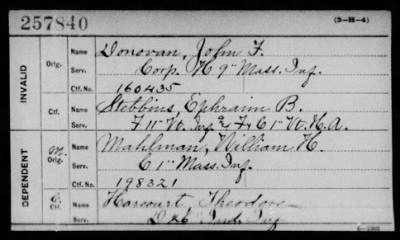 257840
(3-H-4)
INVALID
Orig.
Name Donovan, John F.
Serv. Corp. K 9" Mass. Inf.
Ctf. No. 160435
Ctf.
Name Stebbins, Ephraim B.
Serv. F 11" Vt. Inf & F, C 1" Vt. H.A.
DEPENDENT
m. Orig.
Name Mahlman, William H.
Serv. C 1" Mass. Inf.
Ctf. No. 198321
Ctf.
Name Harcourt, Theodore
Serv. D 26" Ind. Inf